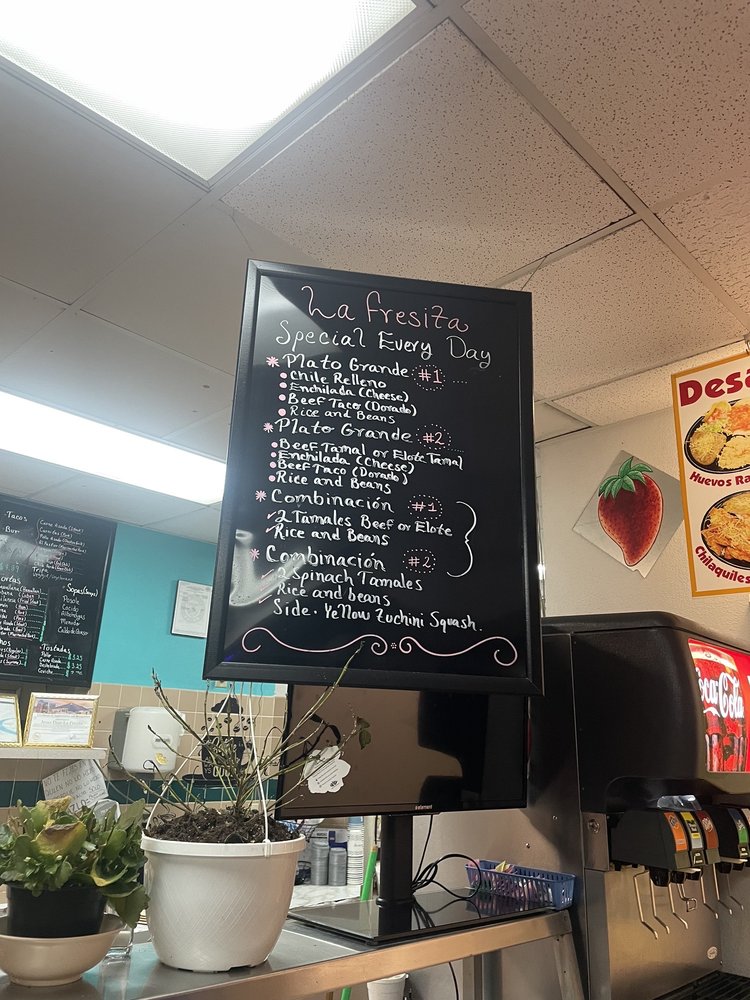 La Fresita
Special Every Day
* Plato Grande #1
• Chile Relleno
• Enchilada (Cheese)
• Beef Taco (Dorado)
• Rice and Beans
* Plato Grande #2
• Beef Tamal or Elote Tamal
• Enchilada (Cheese)
• Beef Taco (Dorado)
• Rice and Beans
* Combinación #1
✓ 2 Tamales Beef or Elote
✓ Rice and Beans
* Combinación #2
✓ 2 Spinach Tamales
✓ Rice and beans
Side. Yellow Zuchini Squash.
Tacos
Sopas (Soups)
Posole
Cocido
Albondigas
Menudo
Caldo de Queso
Tostadas
Ceviche
Desa
Huevos Ra
Chilaquiles
Coca-Cola
element